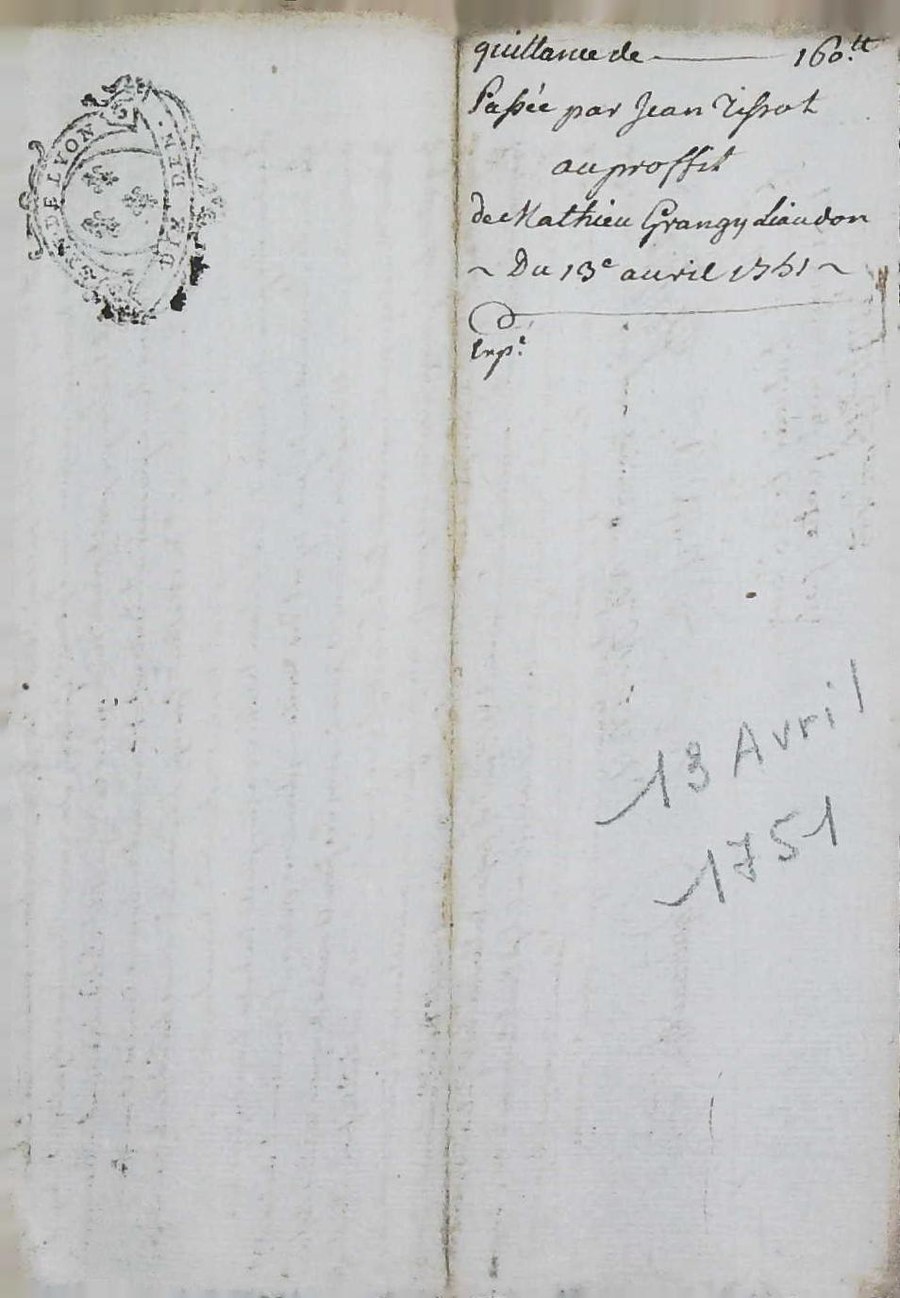 GEN. DE LYON
DIX DEN.
quittance de — 160.tt
Passée par Jean Tissot
au proffit
de Mathieu Grangy Liaudon
~ Du 13e auril 1751 ~
Exp.e
13 Avril
1751